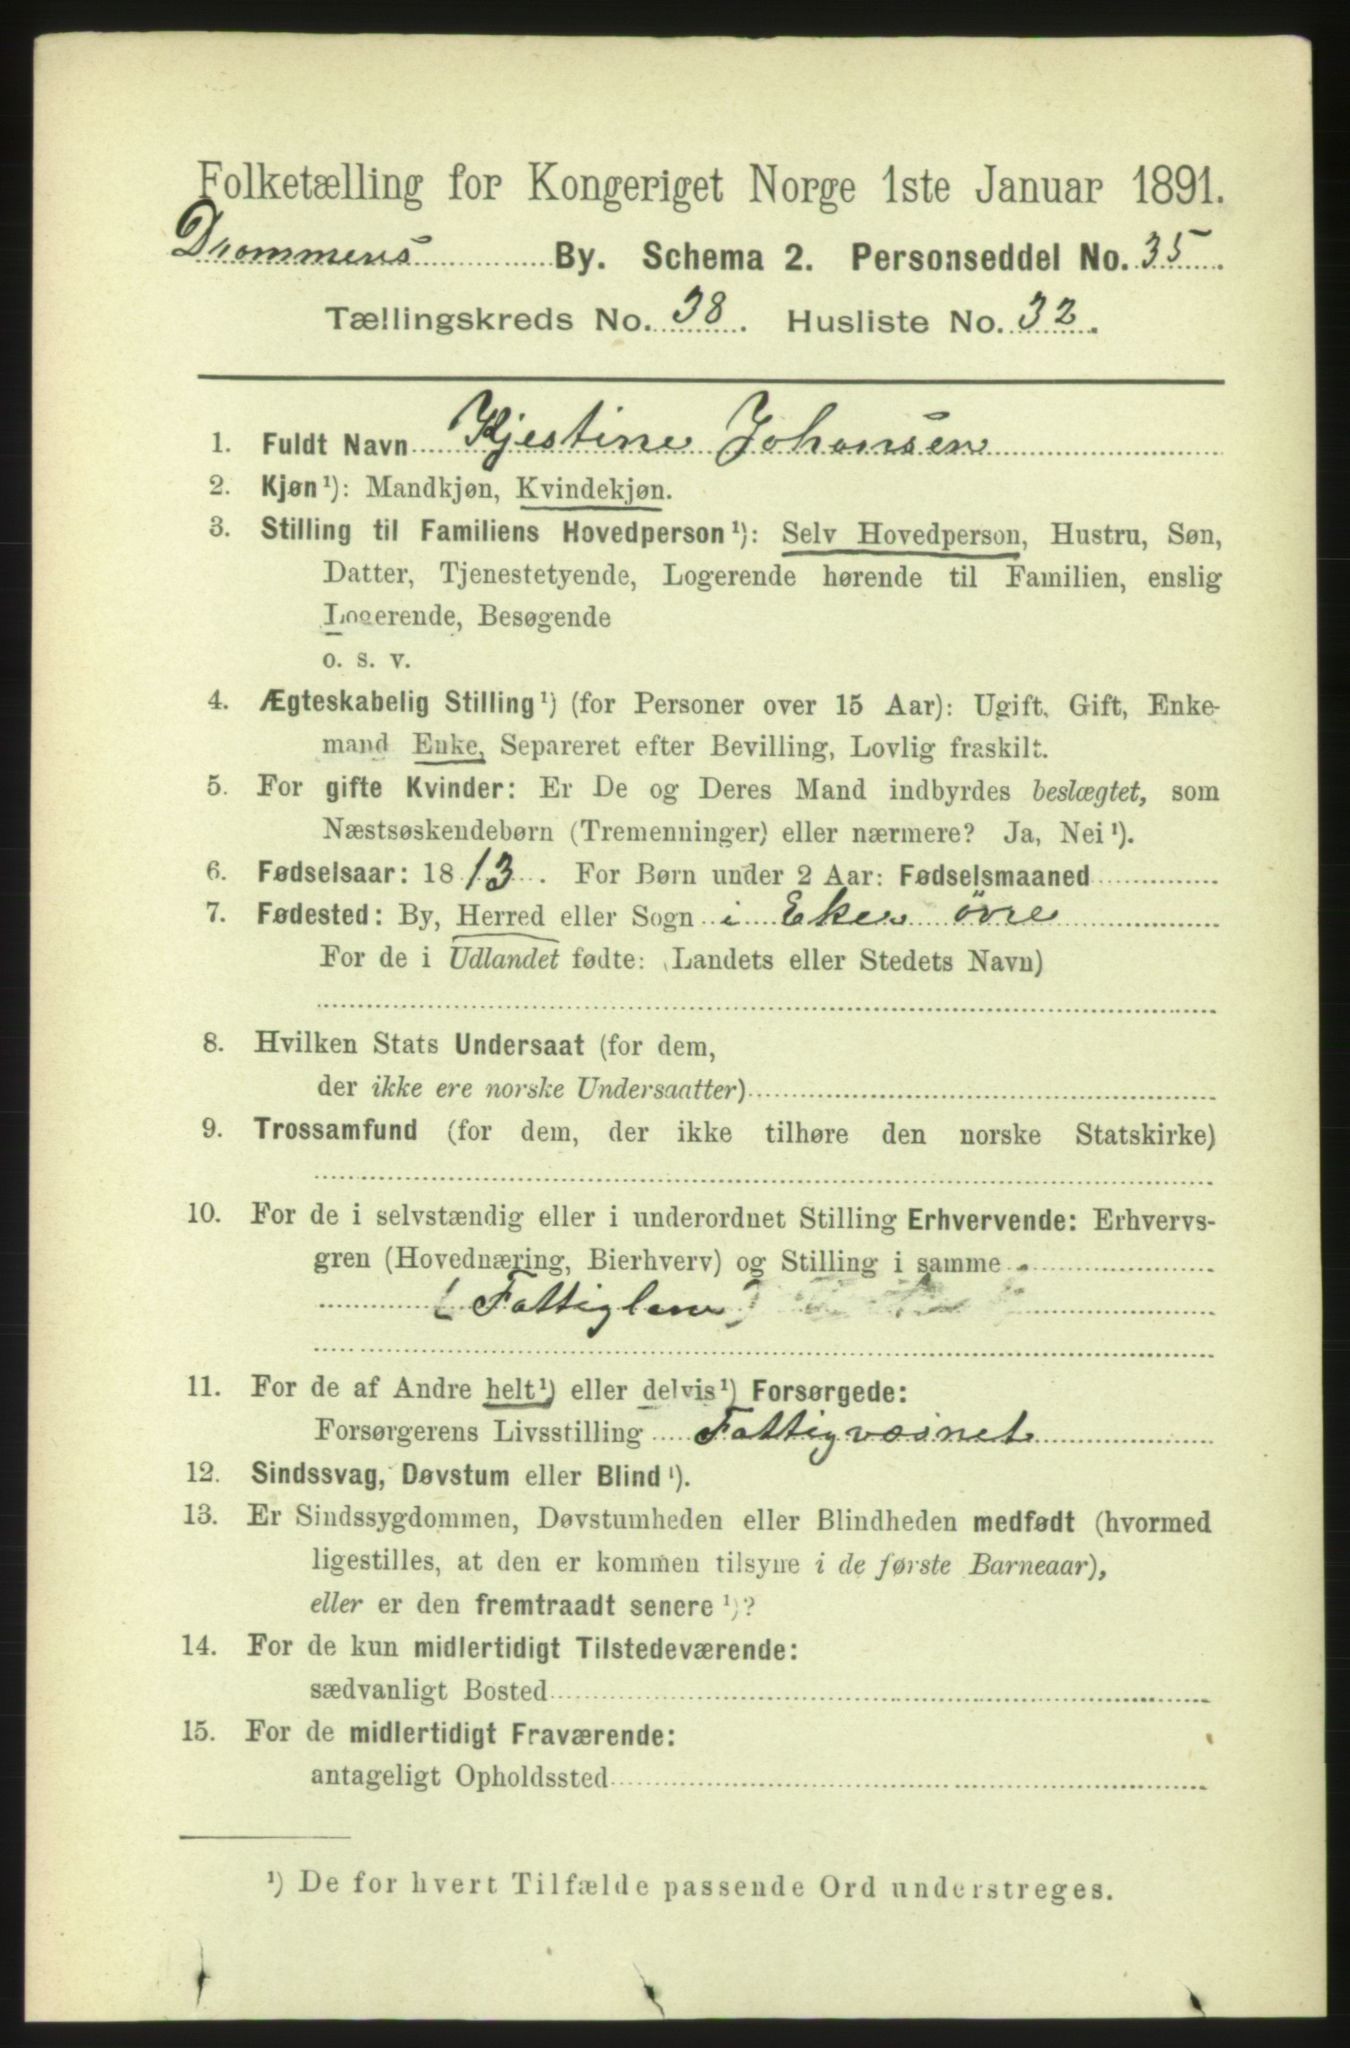 Folketælling for Kongeriget Norge 1ste Januar 1891.
Drammens By. Schema 2. Personseddel No. 35.
Tællingskreds No. 38. Husliste No. 32.
1. Fuldt Navn Kjestine Johansen
2. Kjøn¹): Mandkjøn, Kvindekjøn.
3. Stilling til Familiens Hovedperson¹): Selv Hovedperson, Hustru, Søn,
Datter, Tjenestetyende, Logerende hørende til Familien, enslig
Logerende, Besøgende
o. s. v.
4. Ægteskabelig Stilling¹) (for Personer over 15 Aar): Ugift, Gift, Enke-
mand Enke, Separeret efter Bevilling, Lovlig fraskilt.
5. For gifte Kvinder: Er De og Deres Mand indbyrdes beslægtet, som
Næstsøskendebørn (Tremenninger) eller nærmere? Ja, Nei¹).
6. Fødselsaar: 1813. For Børn under 2 Aar: Fødselsmaaned
7. Fødested: By, Herred eller Sogn i Eker øvre
For de i Udlandet fødte: (Landets eller Stedets Navn)
8. Hvilken Stats Undersaat (for dem,
der ikke ere norske Undersaatter)
9. Trossamfund (for dem, der ikke tilhøre den norske Statskirke)
10. For de i selvstændig eller i underordnet Stilling Erhvervende: Erhvervs-
gren (Hovednæring, Bierhverv) og Stilling i samme
(Fattiglem)
11. For de af Andre helt¹) eller delvis¹) Forsørgede:
Forsørgerens Livsstilling Fattigvæsnet
12. Sindssvag, Døvstum eller Blind¹).
13. Er Sindssygdommen, Døvstumheden eller Blindheden medfødt (hvormed
ligestilles, at den er kommen tilsyne i de første Barneaar),
eller er den fremtraadt senere¹)?
14. For de kun midlertidigt Tilstedeværende:
sædvanligt Bosted
15. For de midlertidigt Fraværende:
antageligt Opholdssted
¹) De for hvert Tilfælde passende Ord understreges.